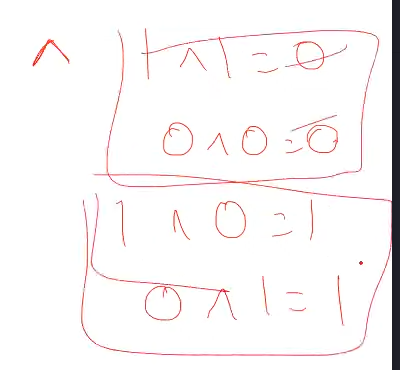 ^
1 ^ 1 = 0
0 ^ 0 = 0
1 ^ 0 = 1
0 ^ 1 = 1